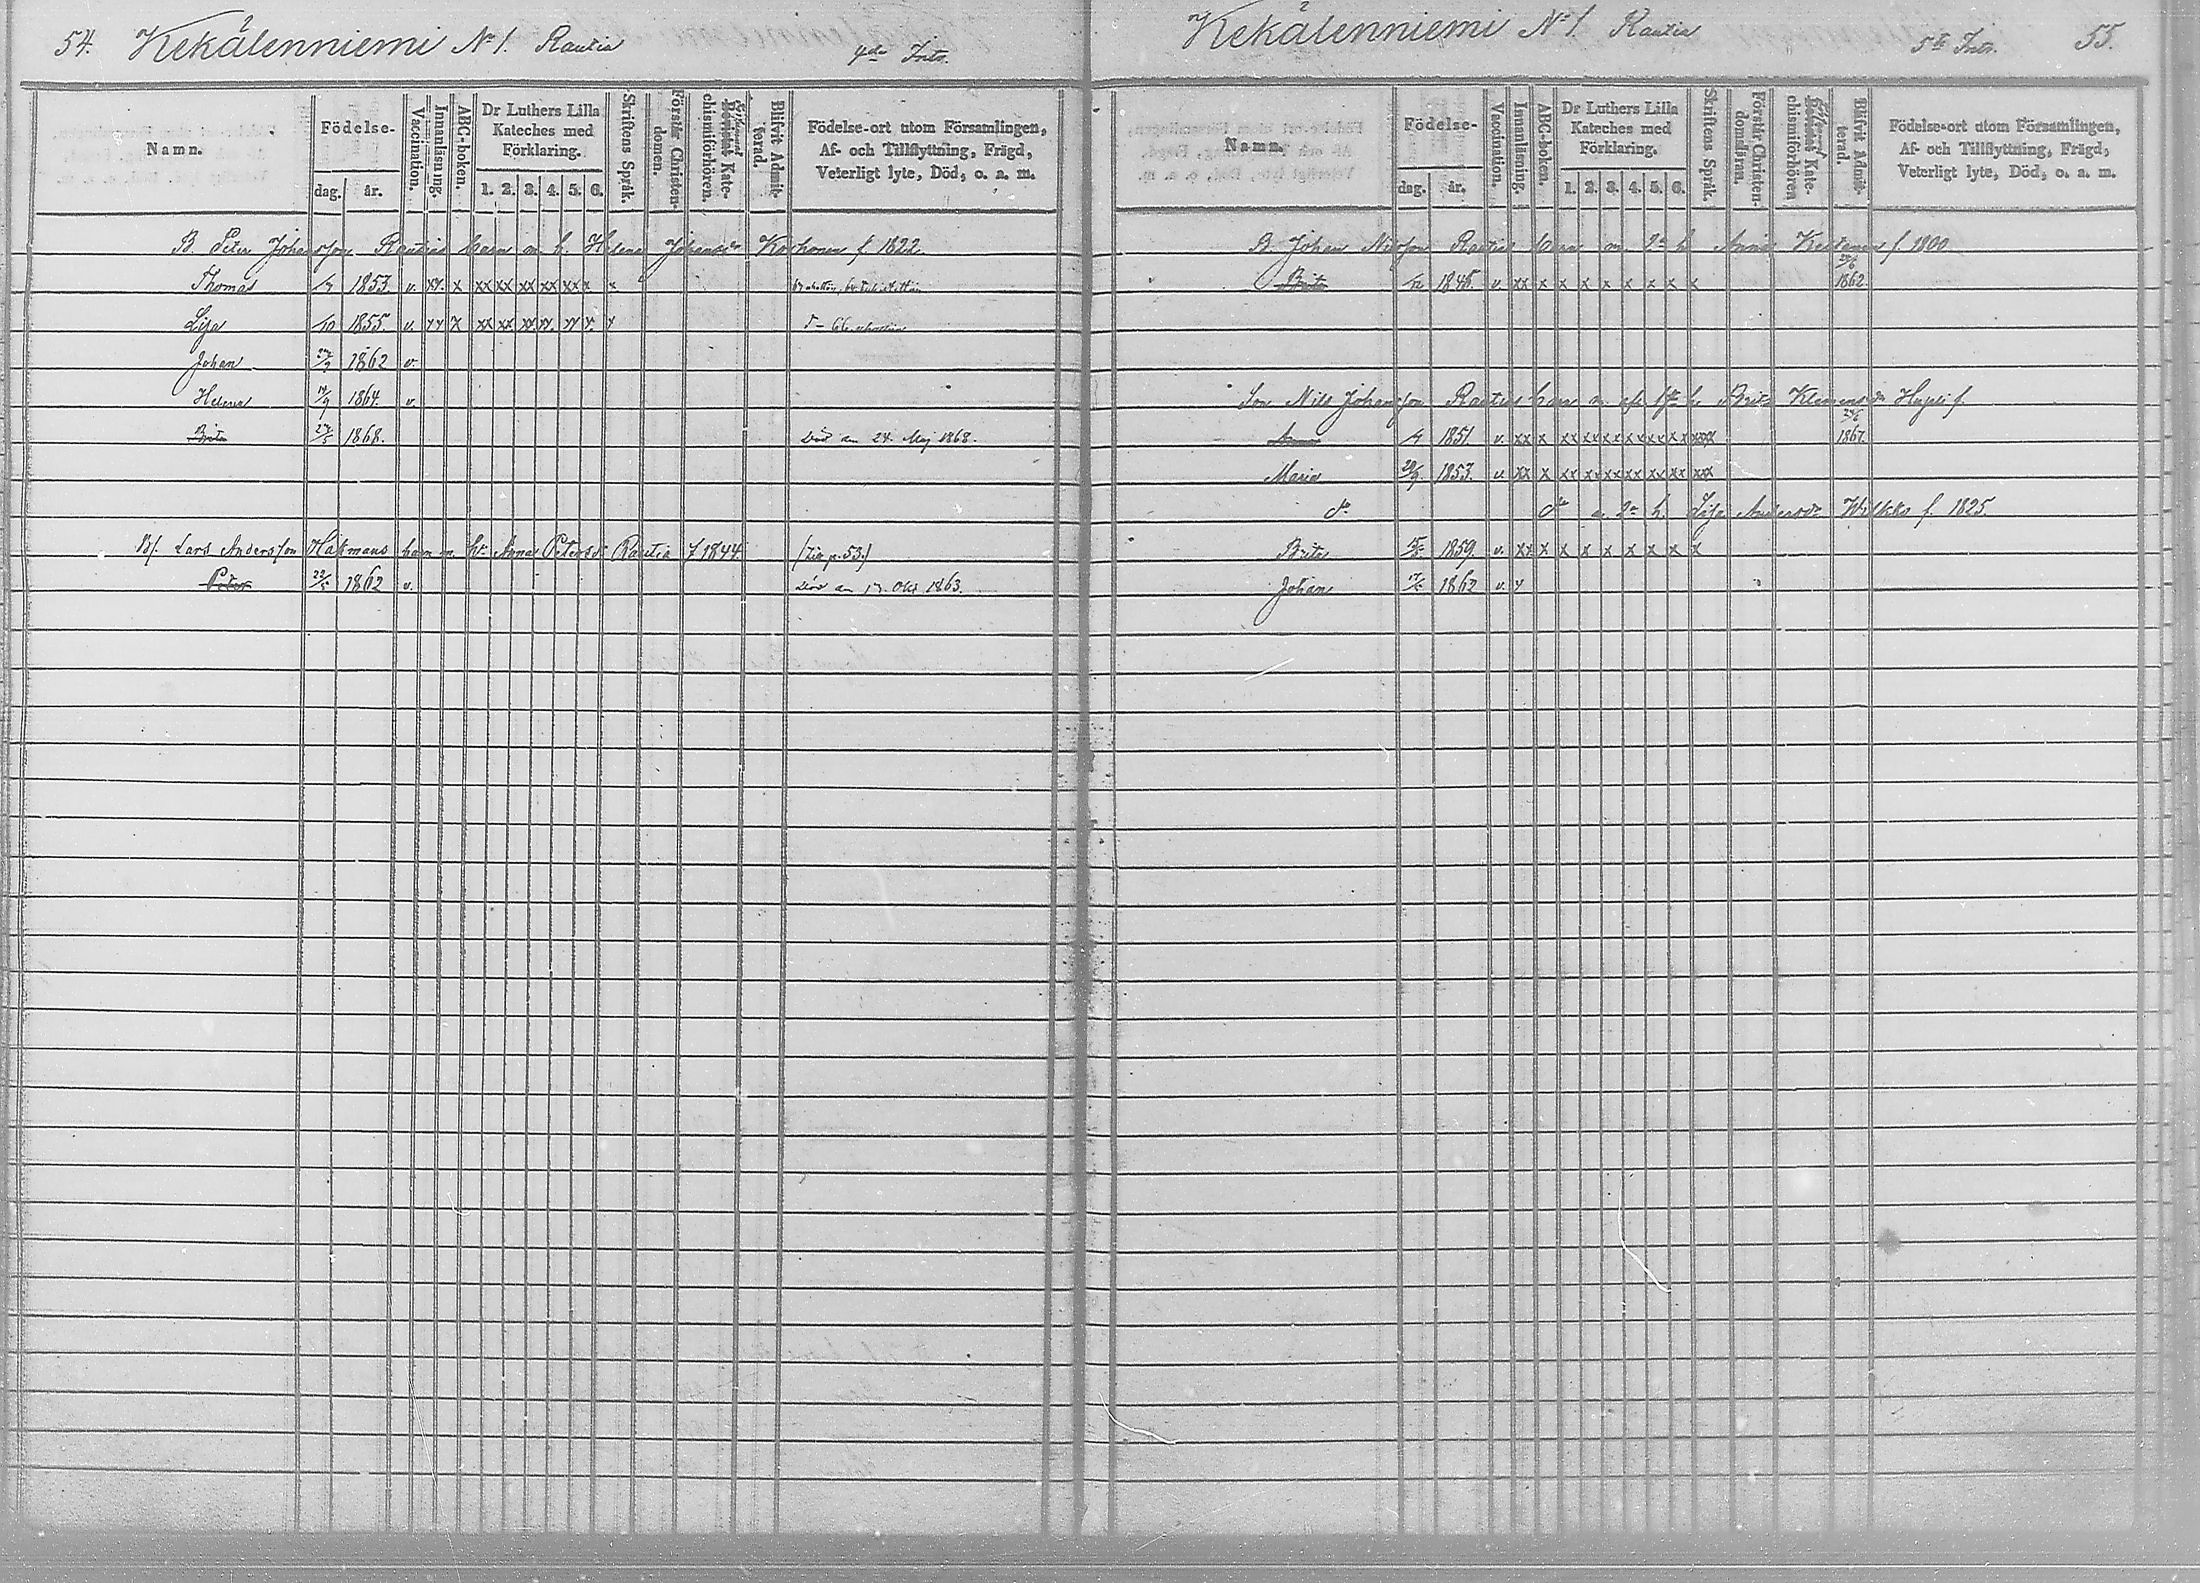 54. Kekälenniemi No 1. Rautia 4de Intr.
Namn.
Födelse-
dag. år.
Vaccination.
Innanläsning.
ABC-boken.
Dr Luthers Lilla
Kateches med
Förklaring.
1. 2. 3. 4. 5. 6.
Skriftens Språk.
Förstår Christen-
domen.
Kate-
chismiförhören.
Blifvit Admit-
terad.
Födelse-ort utom Församlingen,
Af- och Tillflyttning, Frägd,
Veterligt lyte, Död, o. a. m.
B. Peter Johansson Rautias barn m. h. Helena Johansdr Korhonen f. 1822.
Thomas 1853 v. xx. x xx xx xx xx xx x x
Lisa 1855. v. xx x xx xx xx xx. xx x. x
Johan 1862 v.
Helena 19/9 1864. v.
Brita 27/5 1868. Död an 24. Maj 1868.
Bf. Lars Andersson Hakmans barn m. h. Anna Petersdr Rautia f 1844. (Tig p. 53.)
Peter 22/5 1862 v. Död an 17. Okt 1863.
Kekälenniemi No 1. Rautia 5te Intr. 55.
Namn.
Födelse-
dag. år.
Vaccination.
Innanläsning.
ABC-boken.
Dr Luthers Lilla
Kateches med
Förklaring.
1. 2. 3. 4. 5. 6.
Skriftens Språk.
Förstår Christen-
domslären.
Kate-
chismiförhören
Blifvit Admit-
terad.
Födelse-ort utom Församlingen,
Af- och Tillflyttning, Frägd,
Veterligt lyte, Död, o. a. m.
B. Johan Nilsson Rautias barn m. 2a h. Anna f. 1800
Brita 1845. v xx x x x x x x x x 1862.
Son Nils Johansson Rautias barn m. afl. 1sta h. Brita Klemensdr f.
Anna 1851 v. xx x xx xx xx xx xx xx xxx 1867.
Maria 20/9. 1853. v. xx x xx xx xx xx xx xx xxx
do do m. 2a h. Lisa Andersdr Wilkko f. 1825.
Brita 1859. v. xx x x x x x x x x
Johan 1862 v. x